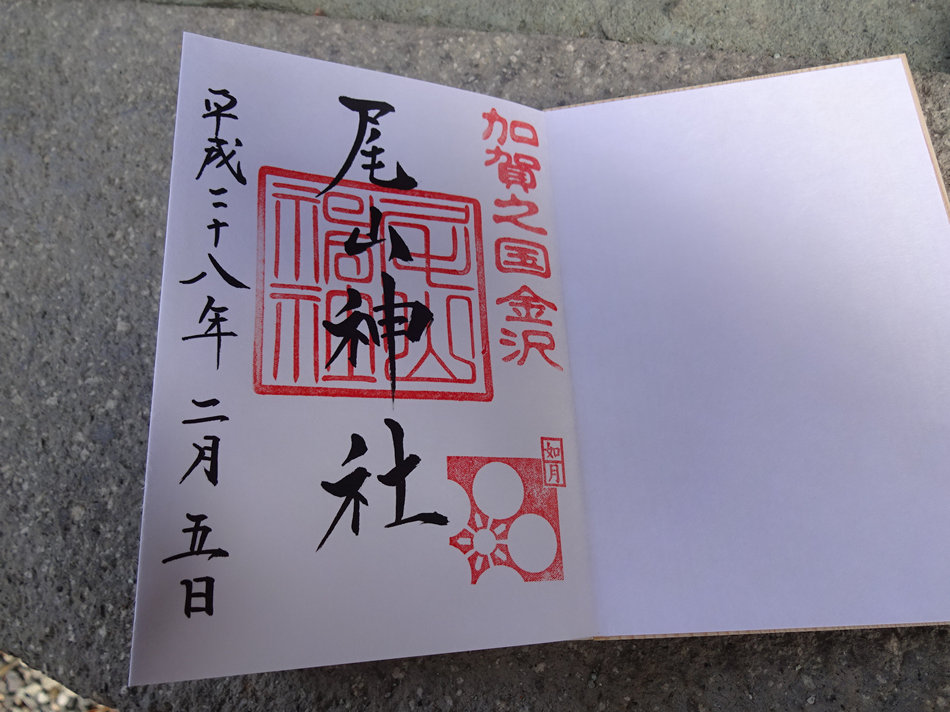 加賀之国金沢
如月
尾山神社
尾山神社
平成二十八年二月五日